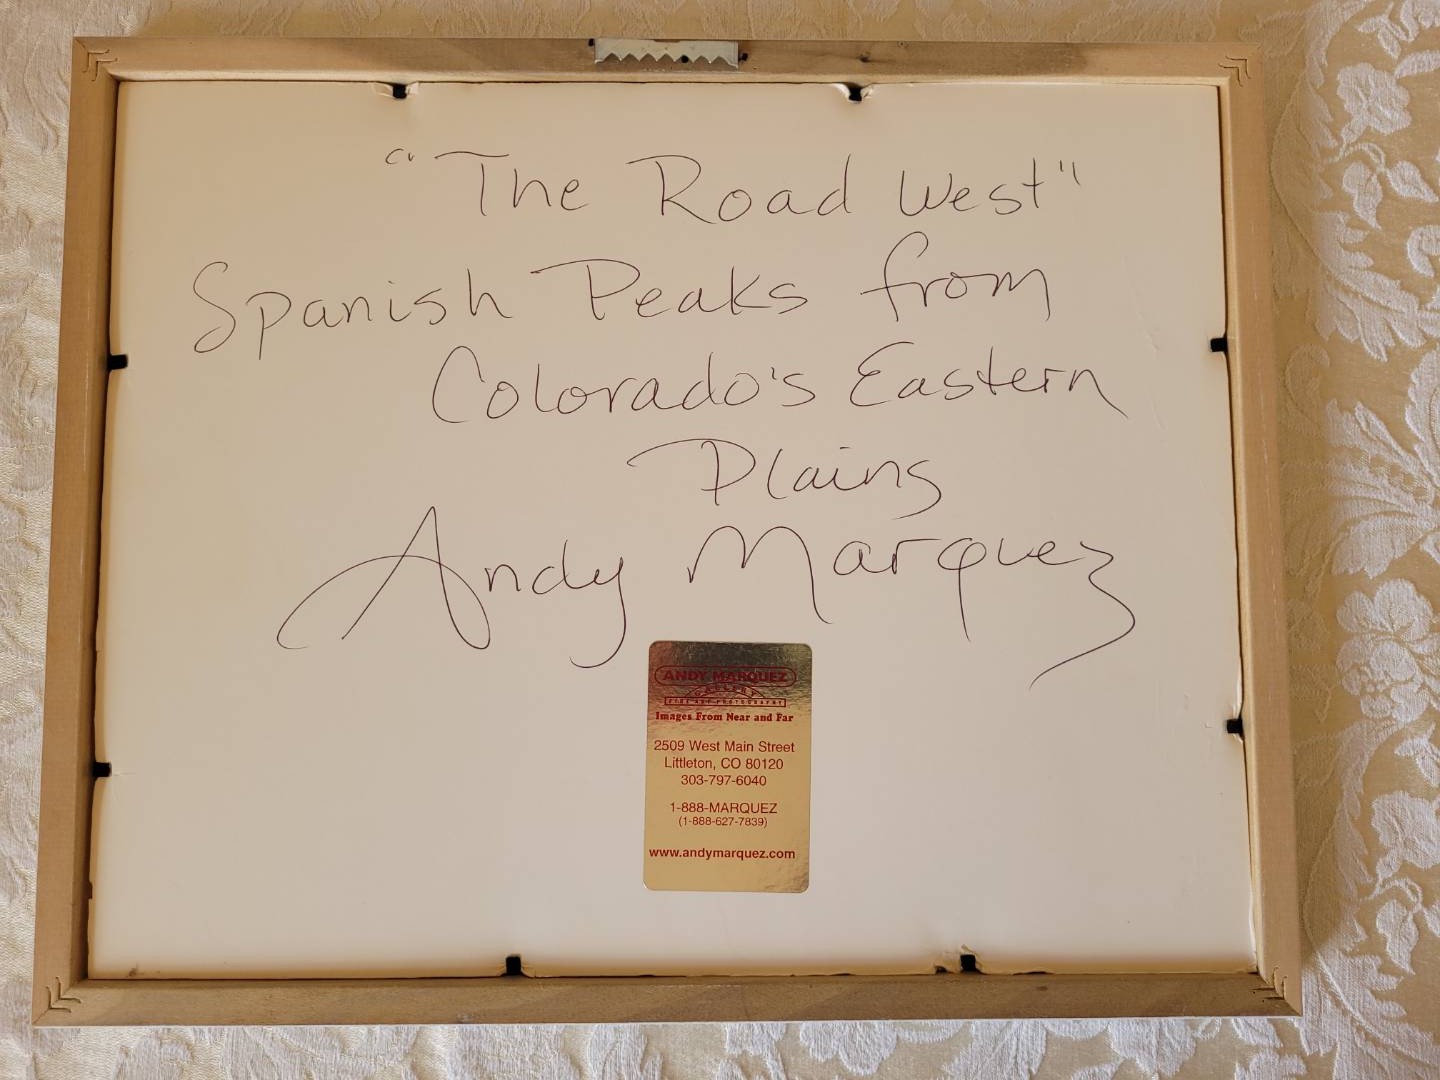 "The Road West"
Spanish Peaks from
Colorado's Eastern
Plains
Andy Marquez
ANDY MARQUEZ
GALLERY
FINE ART PHOTOGRAPHY
Images From Near and Far
2509 West Main Street
Littleton, CO 80120
303-797-6040
1-888-MARQUEZ
(1-888-627-7839)
www.andymarquez.com